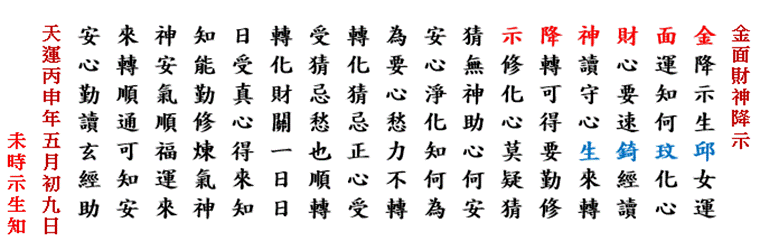 金面財神降示
金降示生邱女運
面運知何玟化心
財心要速錡經讀
神讀守心生來轉
降轉可得要勤修
示修化心莫疑猜
猜無神助心何安
安心淨化知何為
為要心愁力不轉
轉化猜忌正心受
受猜忌愁也順轉
轉化財關一日日
日受真心得來知
知能勤修煉氣神
神安氣順福運來
來轉順通可知安
安心勤讀玄經助
天運丙申年五月初九日
未時示生知